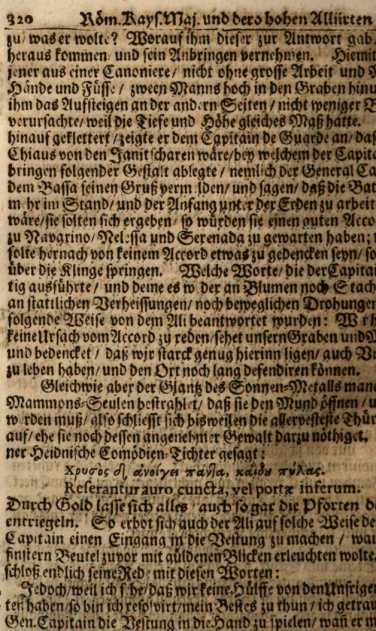 320 Röm. Kays. Maj. und dero hohen Alliirten
zu / was er wolte? Worauf ihm dieser zur Antwort gab /
heraus kommen und sein Anbringen vernehmen. Hiemit
jener aus einer Canoniere / nicht ohne grosse Arbeit und
Hände und Füsse / zween Manns hoch in den Graben hinu
ihm das Aufsteigen an der andern Seiten / nicht weniger
verursachte / weil die Tiefe und Höhe gleiches Maß hatte.
hinauf geklettert / zeigte er dem Capitain de Guarde an / daß
Chiaus von den Janitscharen wäre / bey welchem der Capita
bringen folgender Gestalt ablegte / nemlich der General Ca
dem Bassa seinen Gruß vermelden / und sagen / daß die Bat
mehr im Stand / und der Anfang unter der Erden zu arbeit
wäre / sie solten sich ergeben / so würden sie einen guten Acco
zu Navarino / Nelissa und Serenada zu gewarten haben;
solte hernach von keinem Accord etwas zu gedencken seyn / so
über die Klinge springen. Welche Worte / die der Capitai
tig ausführte / und deine es weder an Blumen noch Stach
an stattlichen Verheissungen / noch beweglichen Drohungen
folgende Weise von dem Ali beantwortet wurden: Wir h
keine Ursach vom Accord zu reden / sehet unsern Graben und
und bedencket / daß wir starck genug hierinn ligen / auch
zu leben haben / und den Ort noch lang defendiren können.
Gleichwie aber der Glantz des Sonnen-Metalls manc
Mammons-Seulen bestrahlet / daß sie den Mund öffnen / u
werden muß / also schliesst sich bisweilen die allervesteste Thür
auf / ehe sie noch dessen angenehmer Gewalt darzu nöthiget.
ner Heidnische Comödien-Tichter gesagt:
Χρυσὸς δ' ἀνοίγει πάντα, καίδυ πύλας.
Reserantur auro cuncta, vel portæ inferum.
Durch Gold lasse sich alles / auch so gar die Pforten de
entriegeln. So erbot sich auch der Ali auf solche Weise de
Capitain einen Eingang in die Vestung zu machen /
finstern Beutel zuvor mit güldenen Blicken erleuchten wolte.
schloß endlich seine Red / mit diesen Worten:
Jedoch / weil ich sehe / daß wir keine Hülffe von den Unsrigen
ten haben / so bin ich resolvirt / mein Bestes zu thun / ich getrau
Gen. Capitain die Vestung in die Hand zu spielen / wañ er m